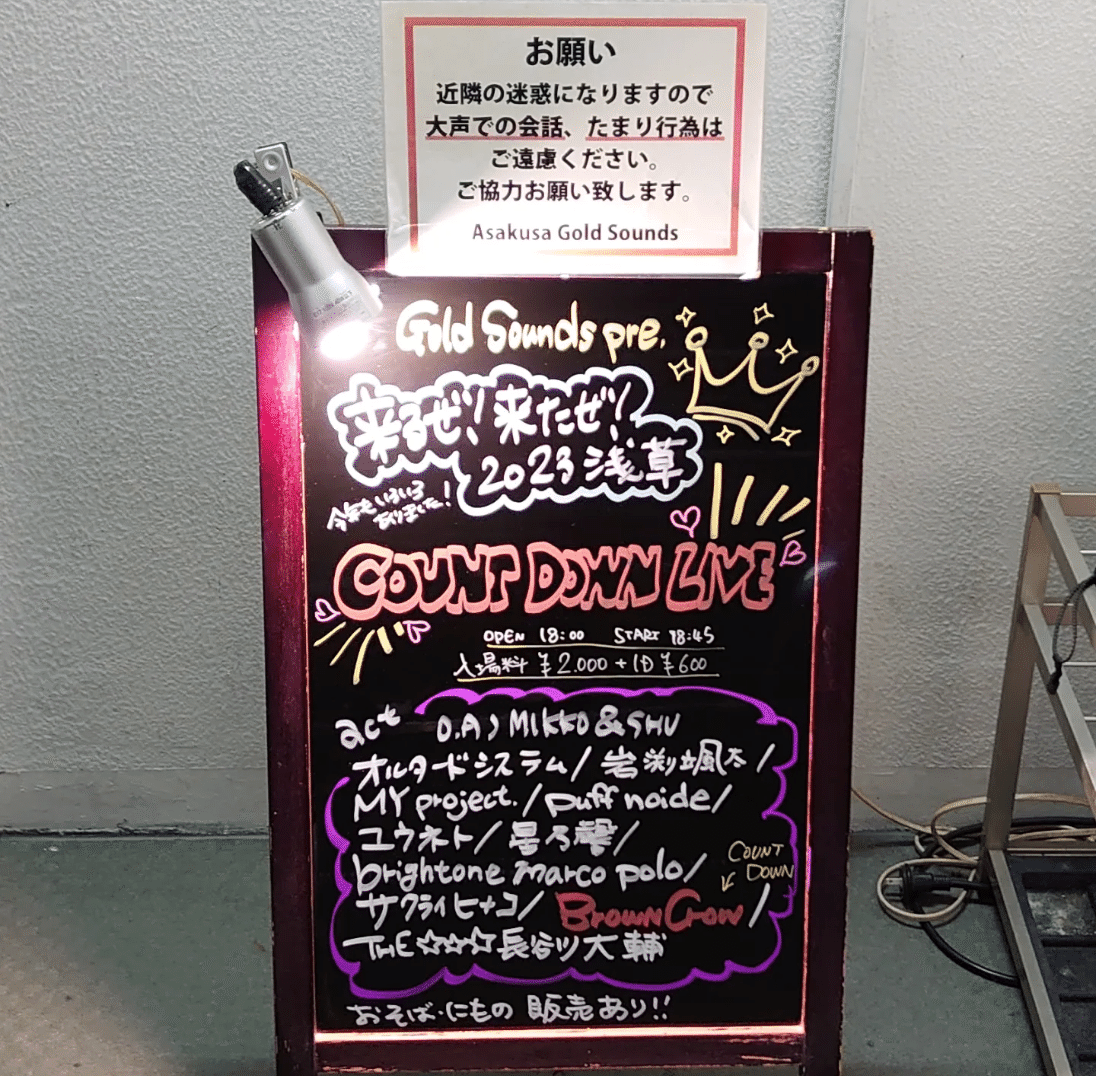 お願い
近隣の迷惑になりますので
大声での会話、たまり行為は
ご遠慮ください。
ご協力お願い致します。
Asakusa Gold Sounds
Gold Sounds pre.
来るぜ! 来たぜ!
2023 浅草
今年もいろいろ
ありました!
COUNT DOWN LIVE
OPEN 18:00 START 18:45
入場料 ¥2.000+1D ¥600
act O.A) MIKKO&SHU
オルタードシステム/岩渕颯太/
MY project./puff noide/
ユウネト/星乃馨/
brightone marco polo/
COUNT
DOWN
サクライヒナコ/BrownCrow/
THE☆☆☆☆長谷川大輔
おそば・にもの 販売あり!!